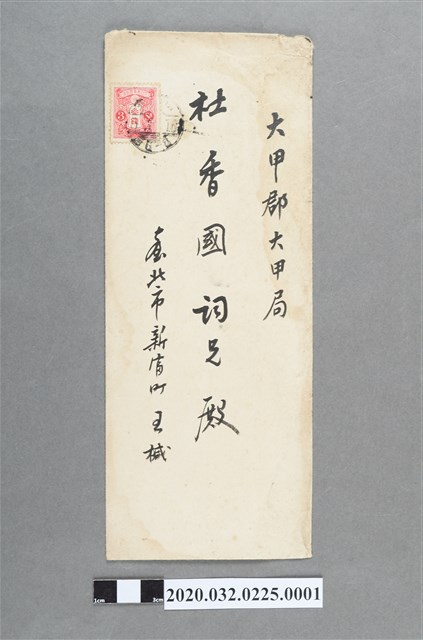 大甲郡大甲局
杜香國詞兄殿
臺北市新富町王椷
3
1cm 3cm
2020.032.0225.0001